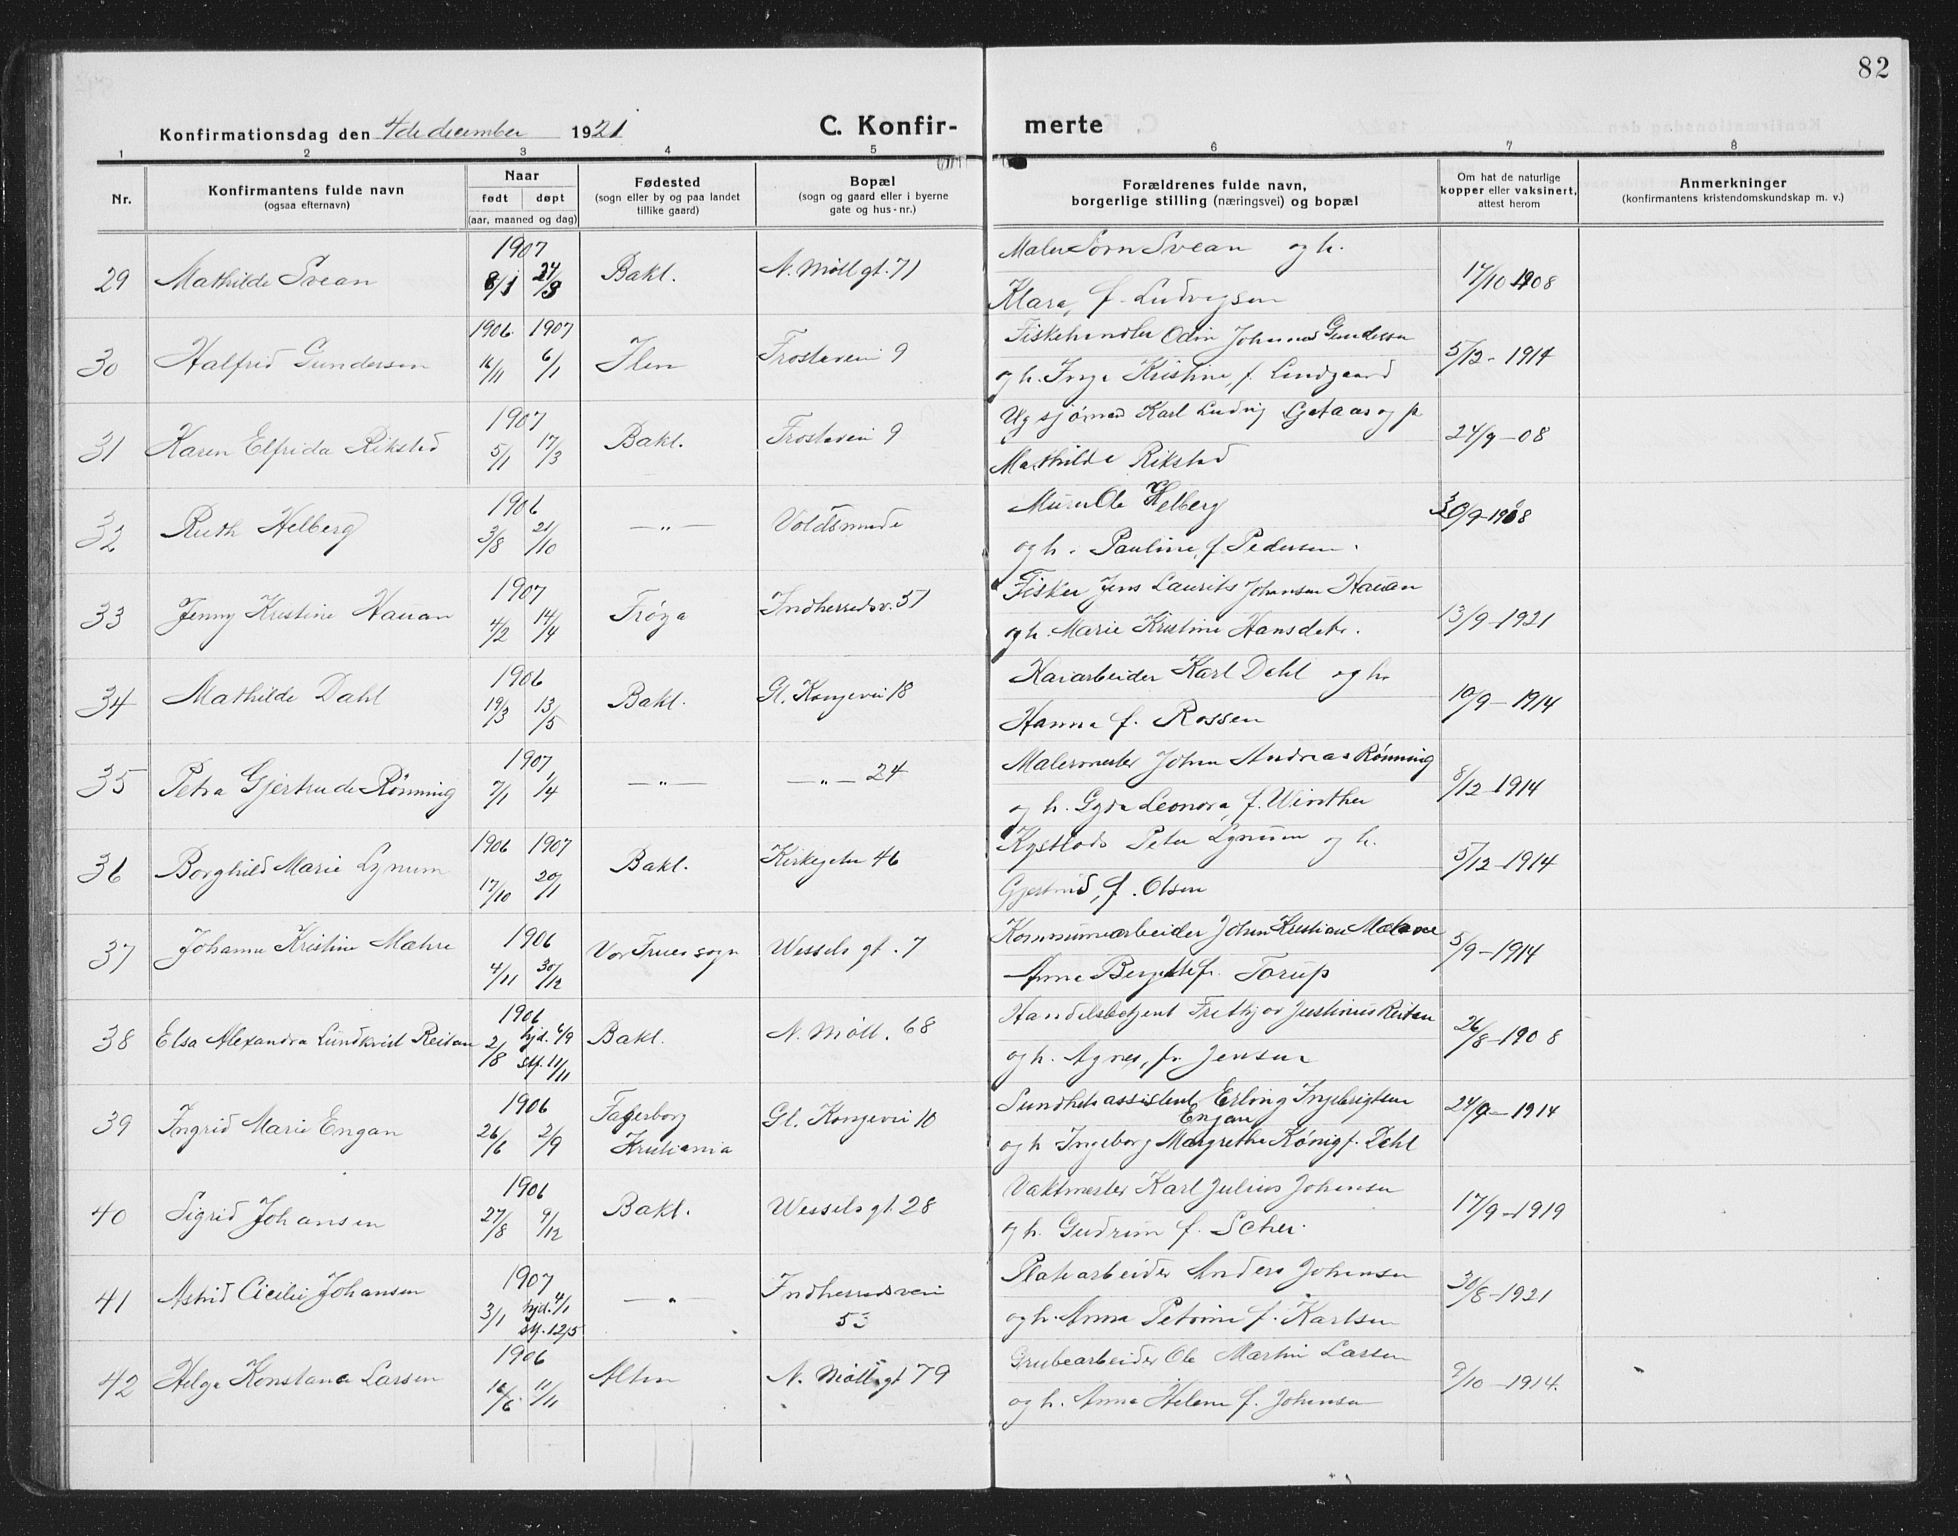 82
Konfirmationsdag den 4de december 1921
C. Konfir-merte
1 2 3 4 5 6 7 8
Nr.
Konfirmantens fulde navn
(ogsaa efternavn)
Naar
født døpt
(aar, maaned og dag)
Fødested
(sogn eller by og paa landet
tillike gaard)
Bopæl
(sogn og gaard eller i byerne
gate og hus-nr.)
Forældrenes fulde navn,
borgerlige stilling (næringsvei) og bopæl
Om hat de naturlige
kopper eller vaksinert,
attest herom
Anmerkninger
(konfirmantens kristendomskundskap m. v.)
29 Mathilde Svean 1907 8/1 24/3 Bakl. N. Møll gt. 71 Maler Sorn Svean og h.
Klara, f. Ludvigsen 17/10 1908
30 Halfrid Gundersen 1906 16/11 1907 6/1 Ilen Frostaveien 9 Fiskehandler Odin Johannes Gundersen
og h. Inga Kristine, f. Lundgaard 5/12 - 1914
31 Karen Elfrida Rikstad 1907 5/1 17/3 Bakl. Frostaveien 9 Ug sjømand Karl Ludvig Getaas og p
Mathilde Rikstad 24/9 - 08
32 Ruth Helberg 1906 3/8 21/10 — „ — Voldsminde Murer Ole Helberg
og h. Pauline, f. Pedersen. 30/9-1908
33 Jenny Kristine Hauan 1907 4/2 14/4 Frøya Indherredsv. 51 Fisker Jens Laurits Johansen Hauan
og h. Marie Kristine Hansdtr. 13/9-1921
34 Mathilde Dahl 1906 19/3 13/5 Bakl. Gl. Kongevei 18 Kaiarbeider Karl Dahl og h.
Hanna f. Rossen 10/9 - 1914
35 Petra Gjertrude Rønning 1907 7/1 1/4 — „ — — „ — 24 Malermester Johan Andreas Rønning
og h. Gyda Leonora, f. Winther 8/12 - 1914
36 Borghild Marie Lynum 1906 17/10 1907 20/1 Bakl. Kirkegaten 46 Kystlods Peter Lynum og h.
Gjertrud, f. Olsen 5/12 - 1914
37 Johanne Kristine Mæhre 1906 4/11 30/12 Vor Frues sogn Wessels gt. 7 Kommunearbeider Johan Kristian
Anna f. Torup 5/9 - 1914
38 Elsa Alexandra Lundkvist Reitan 1906 2/8 hjd. 6/9 stf. 11/11 Bakl. N. Møll. 68 Handelsbetjent Frethjov Justinius Reitan
og h. Agnes, f. Jensen 26/8 - 1908
39 Ingrid Marie Engan 1906 26/6 2/9 Fagerborg
Kristiania Gl. Kongevei 10 Sundhetsassistent Erling Ingebrigtsen
Engan
og h. Ingeborg Margrethe König f. Dahl 24/9 - 1914
40 Sigrid Johansen 1906 27/8 9/12 Bakl. Wessels gt. 28 Vaktmester Karl Julius Johansen
og h. Gudrun f. Schei 17/9 - 1919
41 Astrid Cicilie Johansen 1907 3/1 hjd. 4/1 stf. 12/5 — „ — Indherredsveien
53 Platearbeider Anders Johansen
og h. Anna Petrine f. Karlsen 30/8 - 1921
42 Helga Konstance Larsen 1906 16/6 11/11 Alten N. Møll. gt 79 Grubearbeider Ole Martin Larsen
og h. Anna Helene f. Johansen 9/10 - 1914.